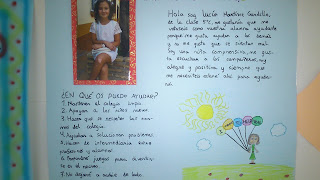 Hola soy Lucía Martínez
de la clase 5ºC, me gustaría que me
votaseis como vuestra alumna ayudante
porque me gusta ayudar a los demás
y no me gusta que se sientan mal.
Soy una niña comprensiva, me gus-
ta escuchar a los compañeros, soy
alegre y positiva y siempre que
me necesitéis estaré ahí para ayuda-
ros.
¿EN QUÉ OS PUEDO AYUDAR?
1. Mantener el colegio limpio.
2. Apoyar a los niños nuevos.
3. Hacer que se respeten las nor-
mas del colegio.
4. Ayudar a solucionar problemas
5. Hacer de intermediaria entre
profesores y alumnos.
6. juegos para divertir-
te en el recreo.
7. No dejaros a nadie de lado.